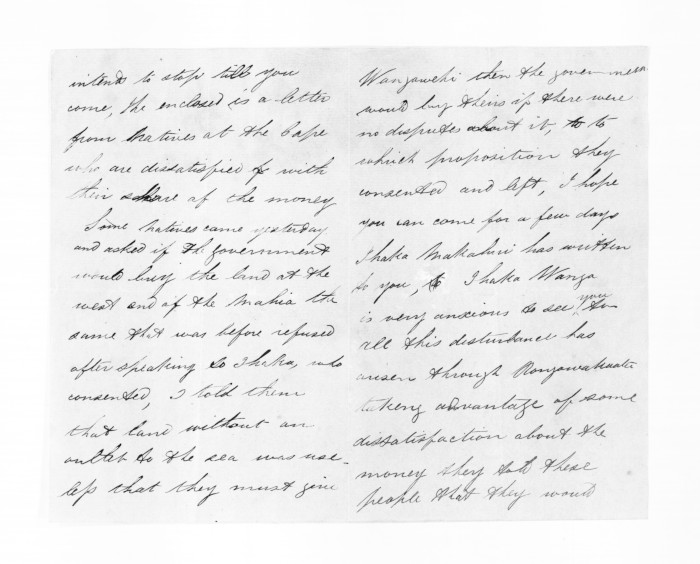 intends to stop till you
come, the enclosed is a letter
from Natives at the Cape
who are dissatisfied with
their share of the money
Some Natives came yesterday
and asked if the government
would buy the land at the
west end of the Mahia the
same that was before refused
after speaking to Ihaka, who
consented, I told them
that land without an
outlet to the sea was use-
less that they must give
Wangawehi then the government
would buy theirs if there were
no disputes about it, to
which proposition they
consented and left, I hope
you can come for a few days
Ihaka Makahuri has written
to you, Ihaka Wanga
is very anxious to see you
all this disturbance has
arisen through
taking advantage of some
dissatisfaction about the
money they told these
people that they would